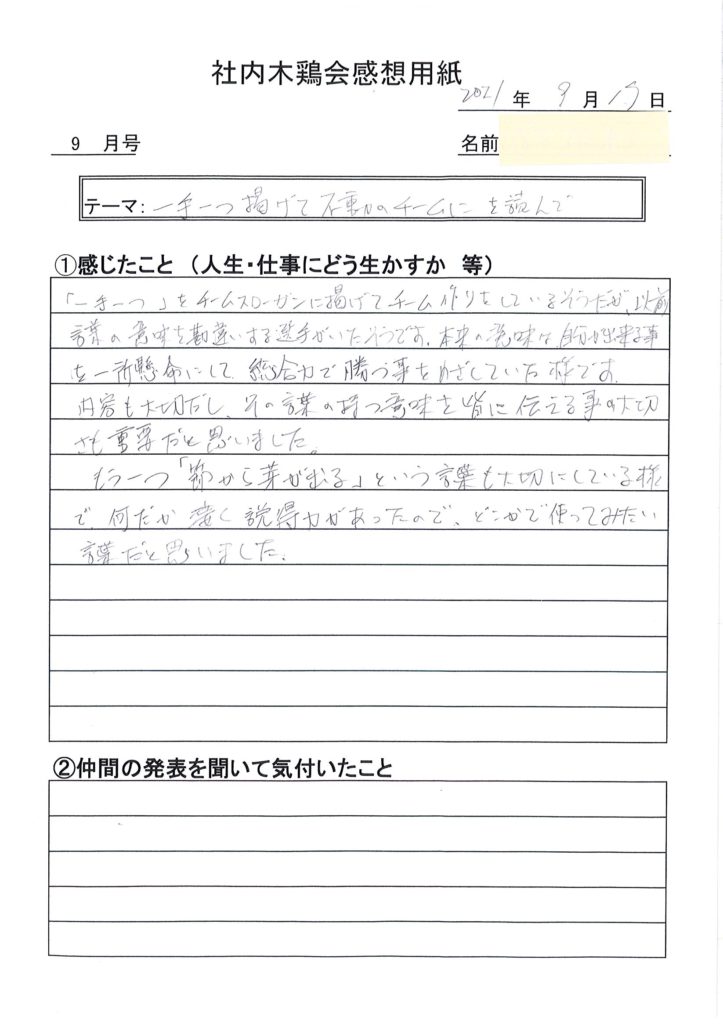 社内木鶏会感想用紙
2021年 9月15日
9 月号
名前
テーマ：一手一つ掲げて不動のチームに を読んで
①感じたこと（人生・仕事にどう生かすか 等）
「一手一つ」をチームスローガンに掲げてチーム作りをしているそうだが、以前
言葉の意味を勘違いする選手がいたそうです。本来の意味は、自分が出来る事
を一所懸命にして、総合力で勝つ事をめざしていた様です。
内容も大切だし、その言葉の持つ意味を皆に伝える事の大切
さも重要だと思いました。
もう一つ「節から芽が出る」という言葉も大切にしている様
で、何だか凄く説得力があったので、どこかで使ってみたい
言葉だと思いました。
②仲間の発表を聞いて気付いたこと